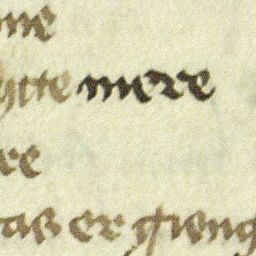 me
gite mere
re
as er gieng